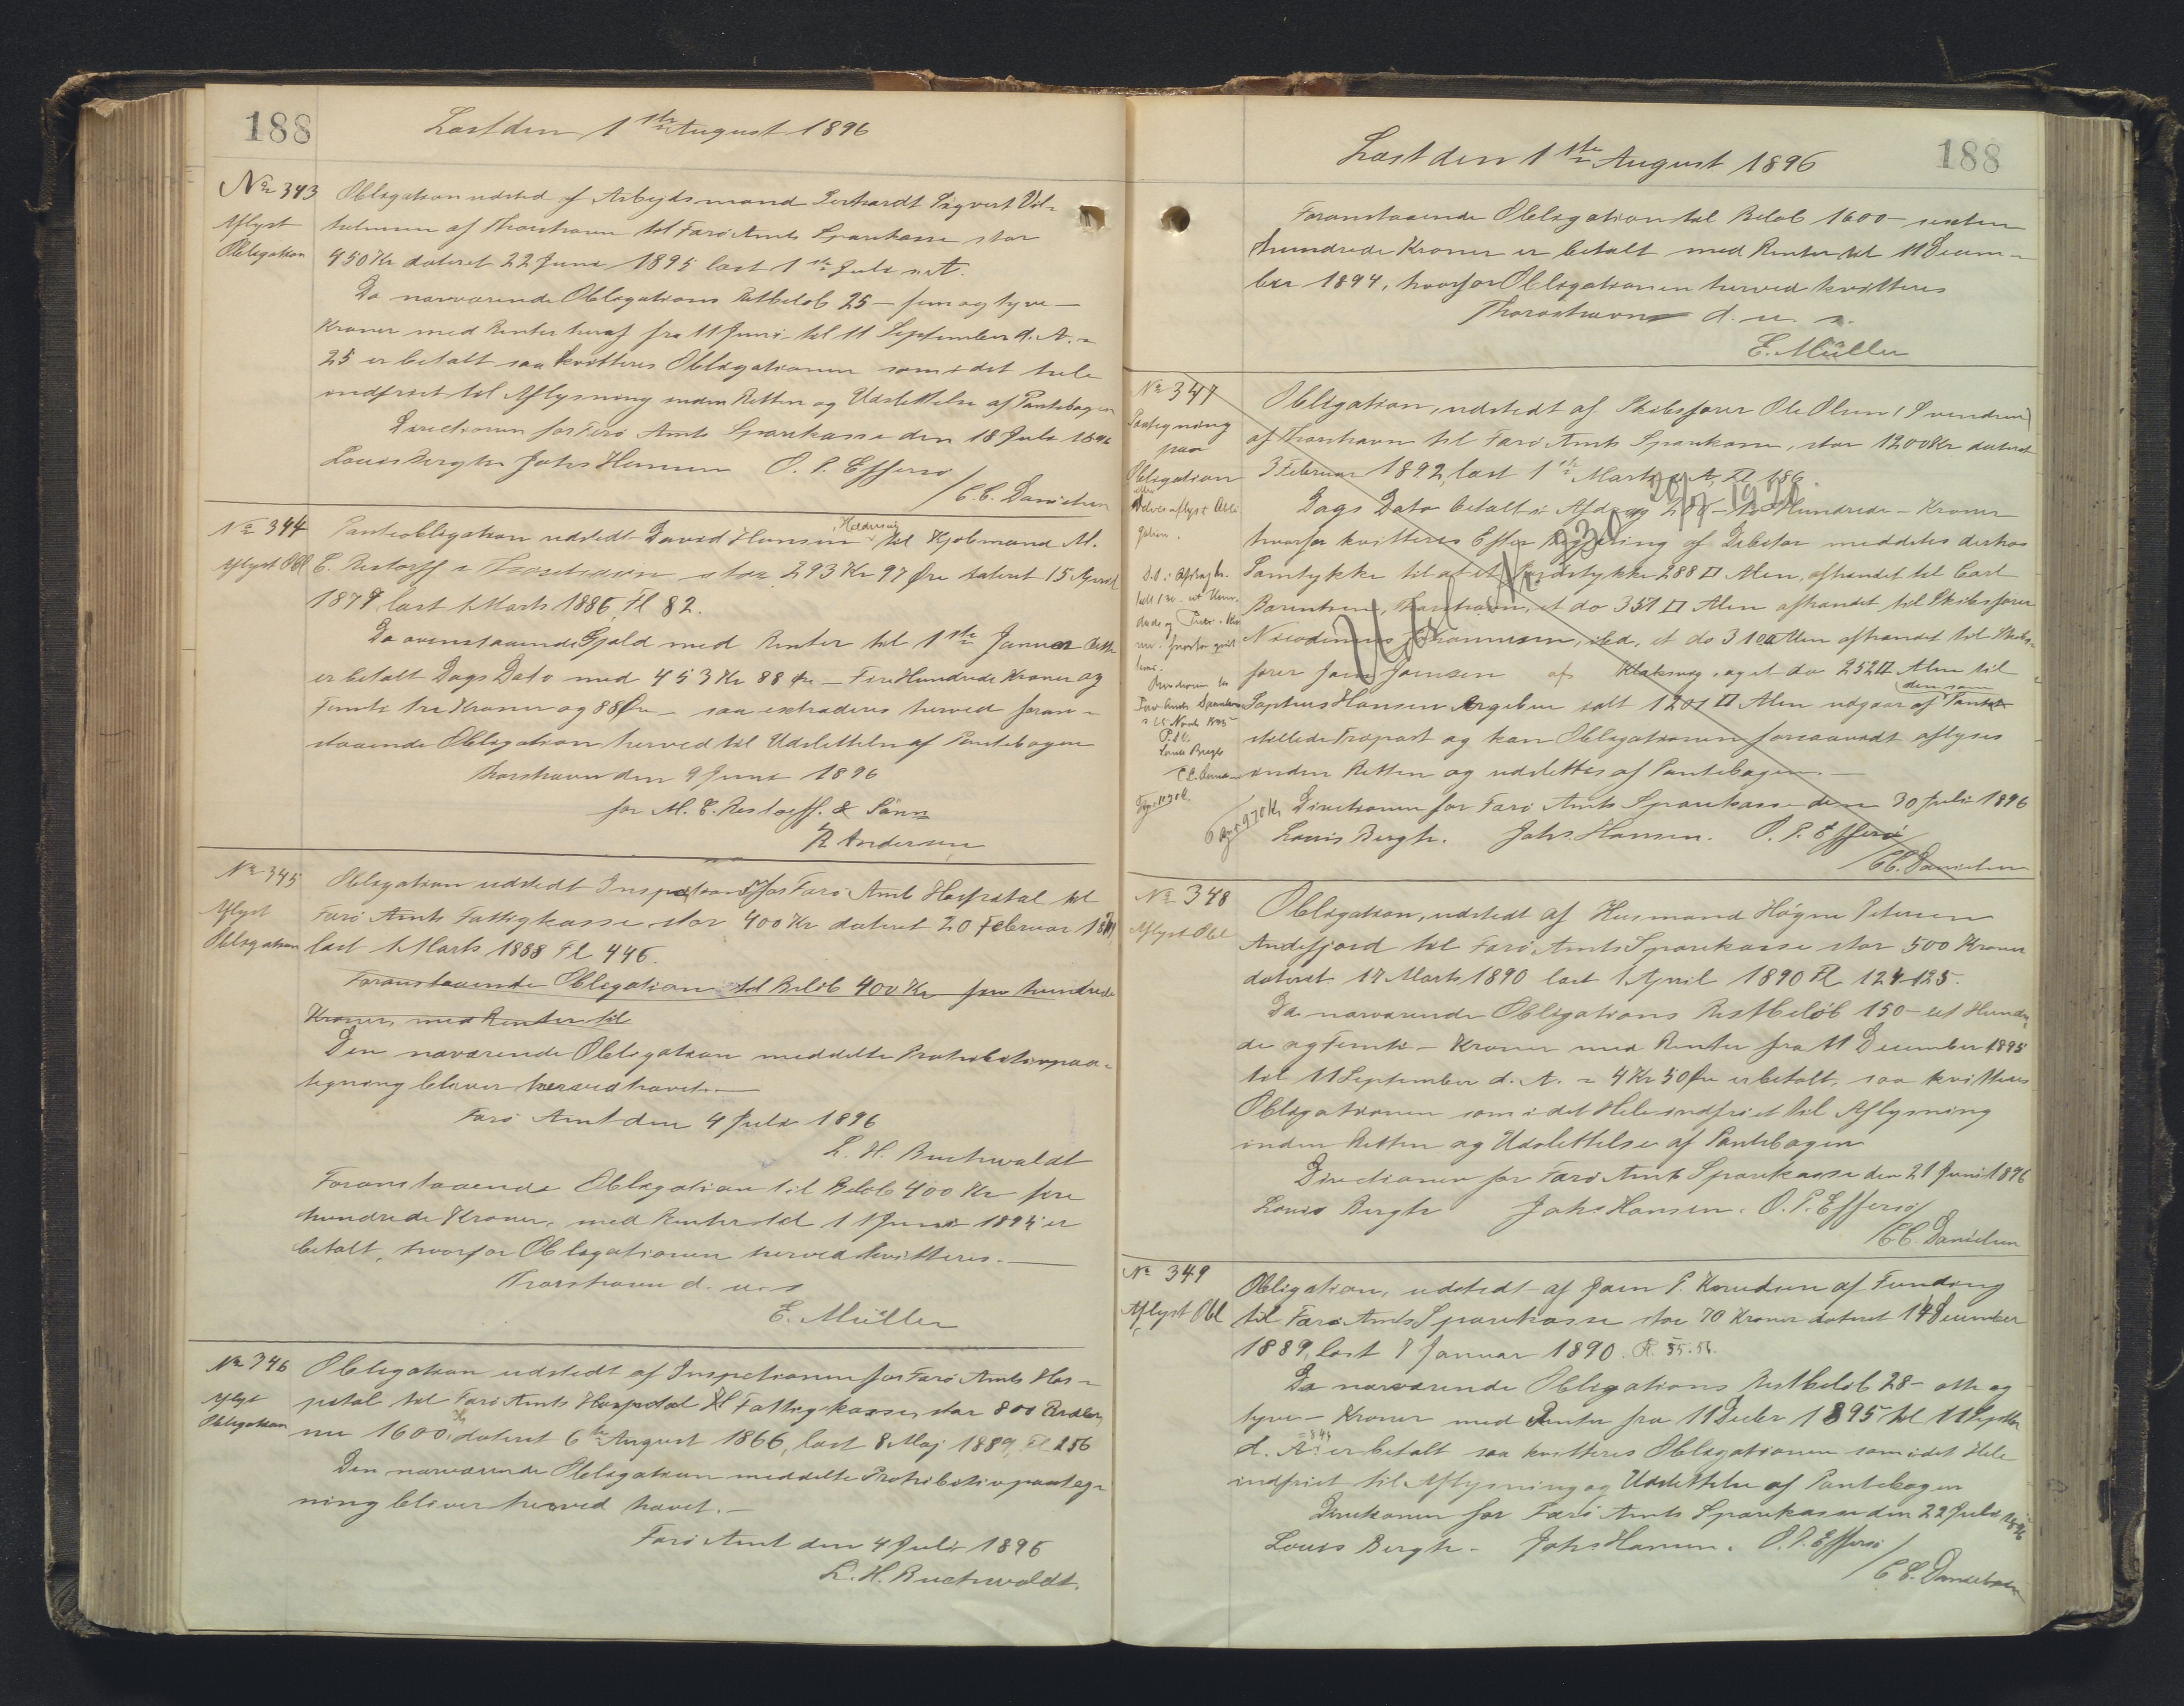 188
Læst den 1ste August 1896
No 343
Aflyst
Obligation
Obligation udsted af Arbejdsmand Gerhardt Sigvert Vil-
helmsen af Thorshavn til Færø Amts Sparekasse stor
450 Kr dateret 22 Juni 1895 læst 1ste Juli s. A.
Da nærværende Obligations Restbeløb 25 — fem og tyve —
Kroner med Renter heraf fra 11 Juni til 11 September d. A. =
25 er betalt saa kvitteres Obligationen som i det hele
indfriet til Aflysning inden Retten og Udslettelse af Pantebogen
Directionen for Færø Amts Sparekasse den 18 Juli 1896
Louis Bergh Johs Hansen O. P. Effersø
/ C. C. Danielsen
No 344
Aflyst Obl
Panteobligation udstedt David Hansen til Kjøbmand M.
C. Restorff i Thorshavn stor 293 Kr 97 Øre dateret 15 August
1879 læst 1 Marts 1886, Fl 82.
Da ovenstaaende Gjæld med Renter til 1ste Januar dette
er betalt Dags Dato med 453 Kr 88 Øre — Fire Hundrede Kroner og
Femti tre Kroner og 88 Øre — saa extraderes herved foran-
staaende Obligation herved til Udslettelse af Pantebogen
Thorshavn den 9 Juni 1896
for M. C. Restorff & Sønn
R Andersen
No 345
Aflyst
Obligation
Obligation udstedt Inspectionen for Færø Amts Hospital til
Færø Amts Fattigkasse stor 400 Kr dateret 20 Februar
læst 1 Marts 1888 Fl 446.
Foranstaaende Obligation til Beløb 400 Kr fire hundrede
Kroner, med Renter til
Den nærværende Obligation meddelte Prohibitivpaa-
tegning bliver herved hævet. —
Færø Amt den 4 Juli 1896
L. H. Buchwaldt
Foranstaaende Obligation til Beløb 400 Kr fire
hundrede Kroner, med Renter til 11 Juni 1894 er
betalt, hvorfor Obligationen herved kvitteres. —
Thorshavn d. u. s
E. Müller
No 346
Aflyst
Obligation
Obligation udstedt af Inspectionen for Færø Amts Hos-
pital til Færø Amts Hospital Fattigkasse, stor 800 Rdaler,
nu 1600 Kr, dateret 6te August 1866, læst 8 Maj 1889, Fl 256
Den nærværende Obligation meddelte Prohibitivpaateg-
ning bliver herved hævet. —
Færø Amt den 4 Juli 1896
L. H. Buchwaldt.
Læst den 1ste August 1896
188
Foranstaaende Obligation til Beløb 1600 — sexten
hundrede Kroner er betalt med Renter til 11 Decem-
ber 1894, hvorfor Obligationen herved kvitteres
Thorshavn d. u. s.
E. Müller
No 347
Paategning
paa
Obligation
Obligation, udstedt af Skibsfører Ole Olsen (Svendsen)
af Thorshavn til Færø Amts Sparekasse, stor 1200 Kr dateret
3 Februar 1892, læst 1ste Marts s. A, Fl 186.
Dags Dato betalt i Afdrag 200 — to Hundrede — Kroner
hvorfor kvitteres Efter Begjæring af Debitor meddeles derhos
Samtykke til at et Jordstykke 288 □ Alen, afhændet til Carl
Barentsen, Thorshavn, et do 351 □ Alen afhændet til Skibsfører
Nicodemus Johannesen, ibd, et do 310 □ Alen afhændet til Skibs-
fører Joen Joensen af Klaksvig, og et do 252 □ Alen til
Sophus Hansen Argeboe ialt 1201 □ Alen udgaar af Pantet
den som
stillede Træpart og kan Obligationen forsaavidt aflyses
inden Retten og udslettes af Pantebogen. —
Directionen for Færø Amts Sparekasse den 30 Juli 1896
Louis Bergh. Johs. Hansen. O. P. Effersø
/ CC. Danielsen
No 348
Aflyst Obl
Obligation, udstedt af Husmand Høgni Petersen
Andefjord til Færø Amts Sparekasse stor 500 Kroner
dateret 17 Marts 1890 læst 1 April 1890 Fl 124-125.
Da nærværende Obligations Restbeløb 150 — et Hundre-
de og Femti — Kroner med Renter fra 11 December 1895
til 11 September d. A. = 4 Kr 50 Øre er betalt, saa kvitteres
Obligationen som i det Hele indfriet til Aflysning
inden Retten og Udslettelse af Pantebogen
Directionen for Færø Amts Sparekasse den 21 Juni 1896
Louis Bergh Johs Hansen. O. P. Effersø
/ CC. Danielsen
No 349
Aflyst Obl
Obligation, udstedt af Joen P. Knudsen af Funding
til Færø Amts Sparekasse stor 70 Kroner dateret 14 December
1889, læst 8 Januar 1890. Fl. 55-56.
Da nærværende Obligations Restbeløb 28 — otte og
tyve — Kroner med Renter fra 11 Decbr 1895 til 11 Septbr
d. A. er betalt saa kvitteres Obligationen som i det Hele
indfriet til Aflysning og Udslettelse af Pantebogen
Directionen for Færø Amts Sparekasse den 22 Juli 1896
Louis Bergh — Johs Hansen. O. P. Effersø
/ C C. Danielsen